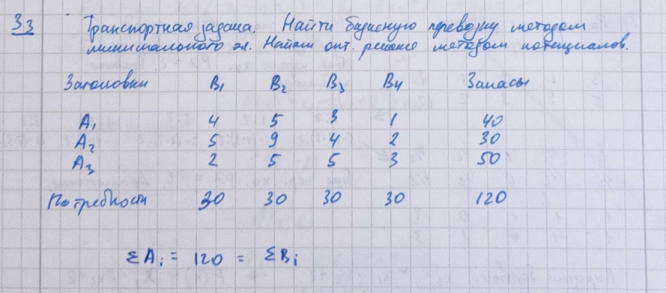 33 Транспортная задача. Найти базисную перевозку методом
минимального эл. Найти опт. решение методом потенциалов.
Заголовки B1 B2 B3 B4 Запасы
A1 4 5 3 1 40
A2 5 9 4 2 30
A3 2 5 5 3 50
Потребности 30 30 30 30 120
ΣAi = 120 = ΣBi